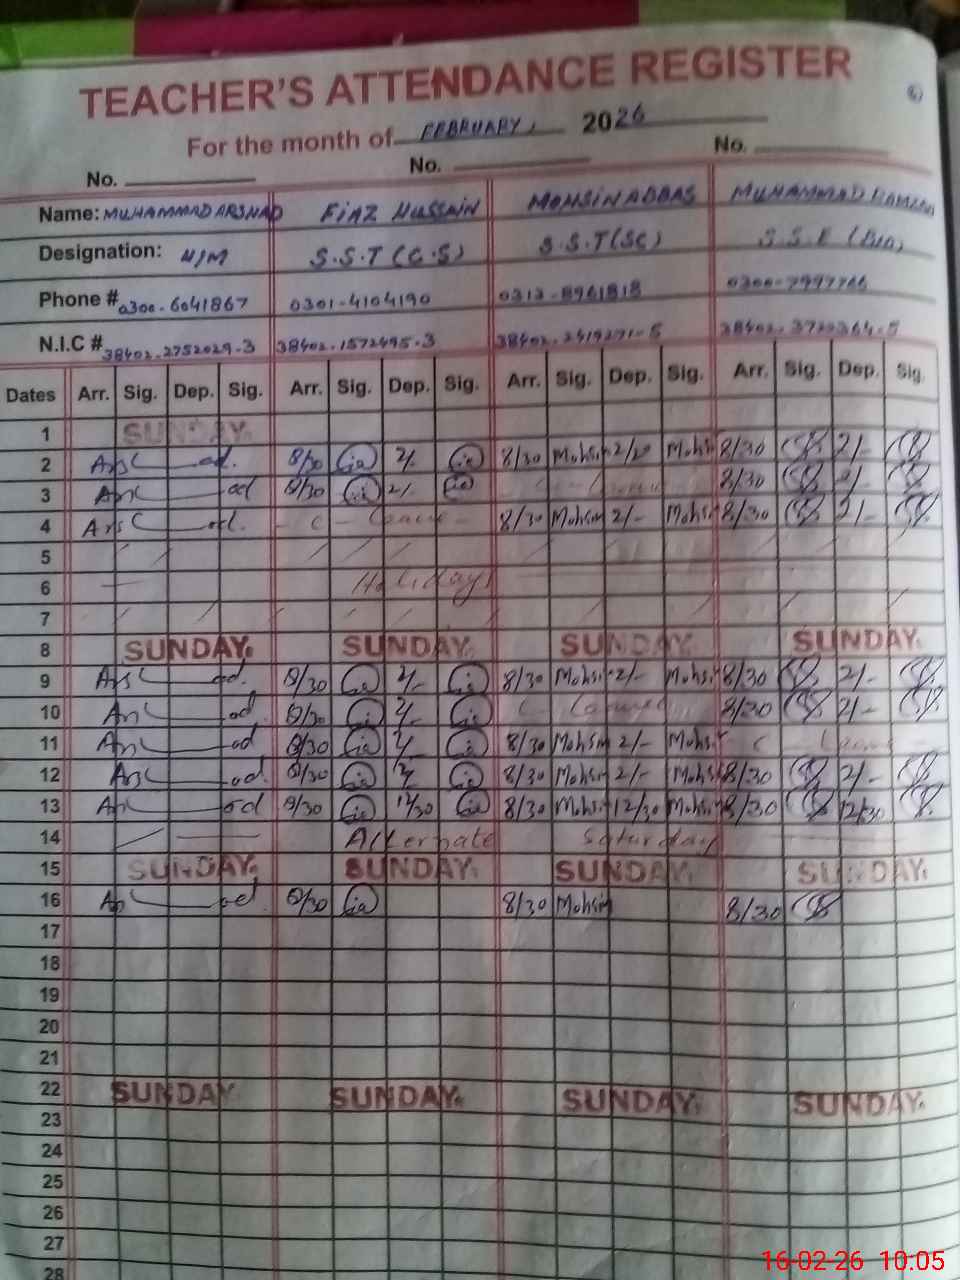 TEACHER'S ATTENDANCE REGISTER
For the month of FEBRUARY, 2026
No. No. No.
Name: MUHAMMAD ARSHAD FIAZ HUSSAIN MOHSIN ABBAS MUHAMMAD
Designation: S.S.T (C.S) S.S.T (SC) S.S.E (Bio)
Phone # 0300-6041867 0301-4104190 0313-8961818 0300-7997766
N.I.C # 38402-2752029-3 38402-1572495-3 38402-2419271-5 38402-3722364-5
Dates Arr. Sig. Dep. Sig. Arr. Sig. Dep. Sig. Arr. Sig. Dep. Sig. Arr. Sig. Dep. Sig.
1 SUNDAY.
2 8/30 2/- 8/30 Mohsin 2/- Mohsin 8/30 2/-
3 8/30 2/- C- Leave 8/30 2/-
4 - C - Leave - 8/30 Mohsin 2/- Mohsin 8/30 2/-
5
6 Holidays
7
8 SUNDAY. SUNDAY. SUNDAY. SUNDAY.
9 8/30 2/- 8/30 Mohsin 2/- Mohsin 8/30 2/-
10 8/30 2/- C- Leave 8/30 2/-
11 8/30 2/- 8/30 Mohsin 2/- Mohsin C - Leave -
12 8/30 2/- 8/30 Mohsin 2/- Mohsin 8/30 2/-
13 8/30 12/30 8/30 Mohsin 12/30 Mohsin 8/30 12/30
14 Alternate Saturday
15 SUNDAY. SUNDAY. SUNDAY. SUNDAY.
16 8/30 8/30 Mohsin 8/30
17
18
19
20
21
22 SUNDAY. SUNDAY. SUNDAY. SUNDAY.
23
24
25
26
27
28
16-02-26 10:05